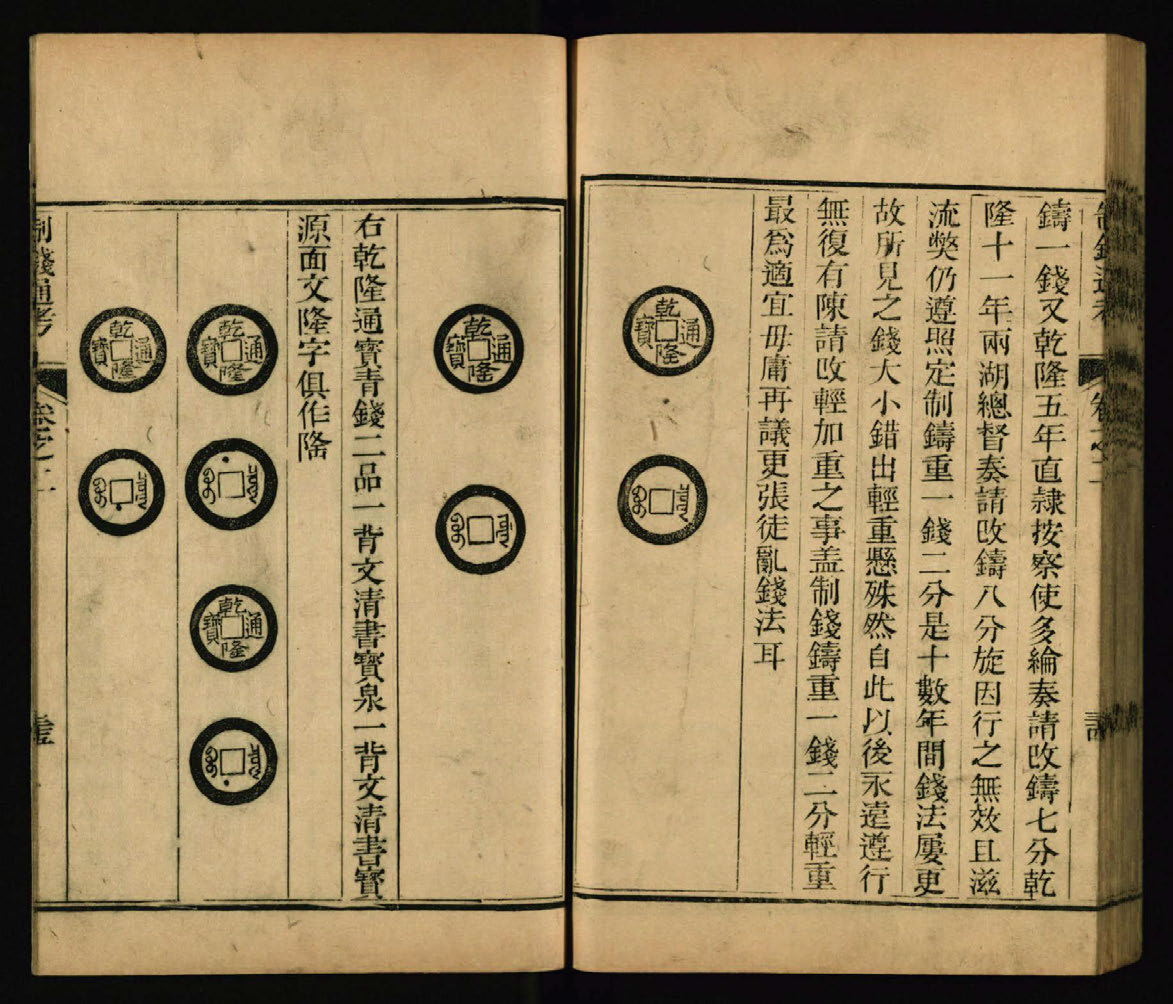 制錢通考
卷之二
鑄一錢又乾隆五年直隸按察使多綸奏請改鑄七分乾
隆十一年兩湖總督奏請改鑄八分旋因行之無效且滋
流獘仍遵照定制鑄重一錢二分是十數年間錢法屢更
故所見之錢大小錯出輕重懸殊然自此以後永遠遵行
無復有陳請改輕加重之事盖制錢鑄重一錢二分輕重
最為適宜毋庸再議更張徒亂錢法耳
乾隆通寶
乾隆通寶
右乾隆通寶青錢二品一背文清書寶泉一背文清書寶
源面文隆字俱作隆
乾隆通寶
乾隆通寶
乾隆通寶
制錢通考
卷之二